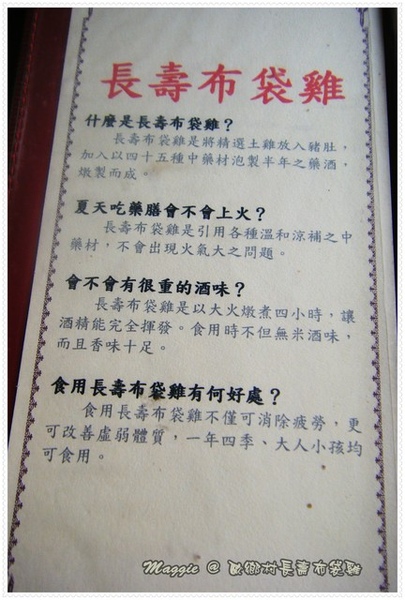 長壽布袋雞
什麼是長壽布袋雞？
長壽布袋雞是將精選土雞放入豬肚，
加入以四十五種中藥材泡製半年之藥酒，
燉製而成。
夏天吃藥膳會不會上火？
長壽布袋雞是引用各種溫和涼補之中
藥材，不會出現火氣大之問題。
會不會有很重的酒味？
長壽布袋雞是以大火燉煮四小時，讓
酒精能完全揮發。食用時不但無米酒味，
而且香味十足。
食用長壽布袋雞有何好處？
食用長壽布袋雞不僅可消除疲勞，更
可改善虛弱體質，一年四季、大人小孩均
可食用。
Maggie @ 鄉村長壽布袋雞